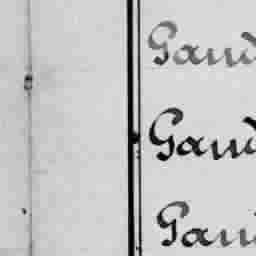 Gaud
Gaud
Gaud